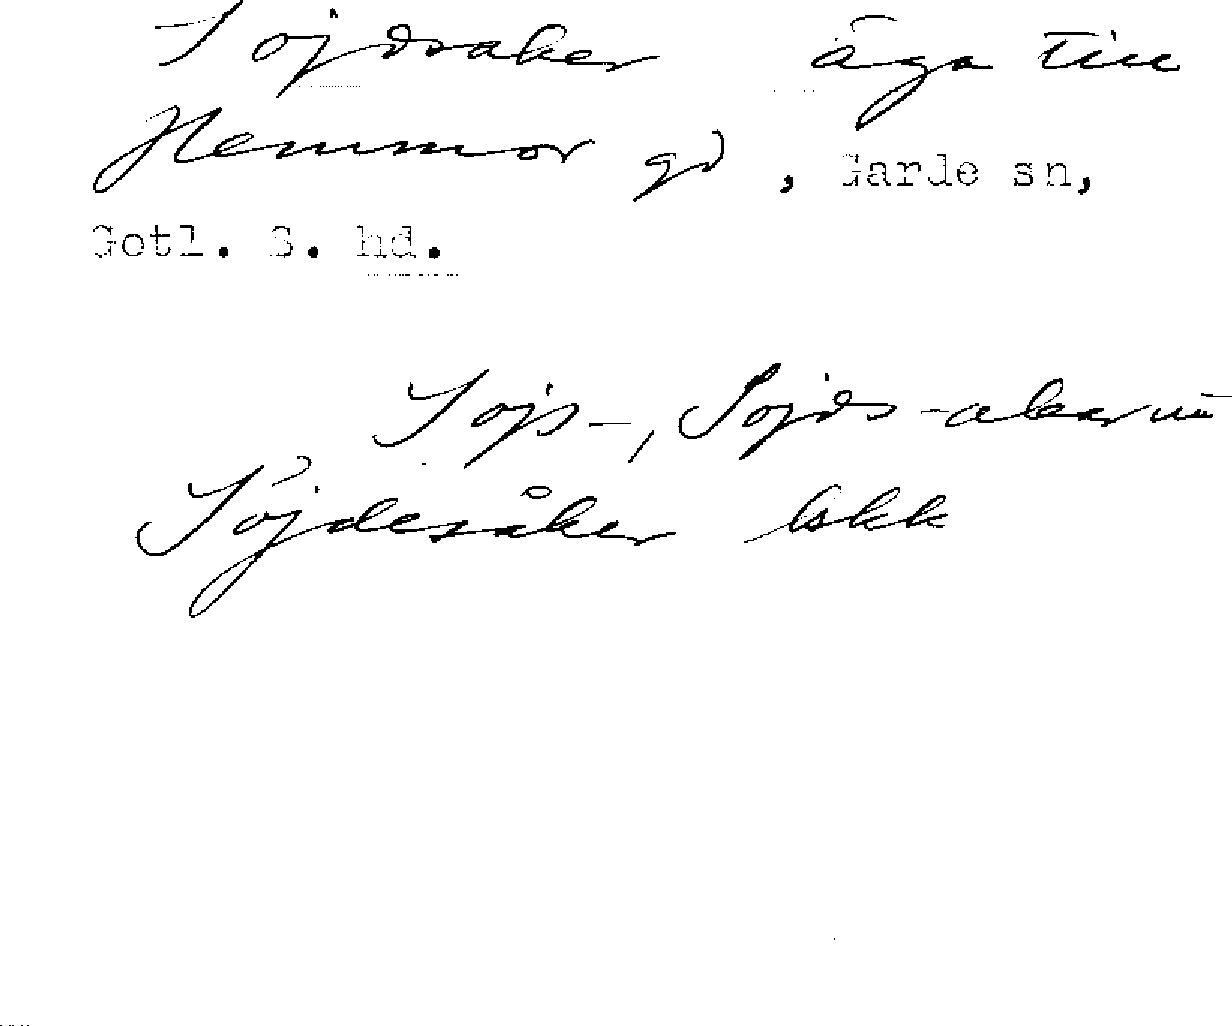 Sojdsaker äga till
Hemmor gd, Garde sn,
Gotl. S. hd.
Sojs-, Sojds-akar
Söjdesåker lskk